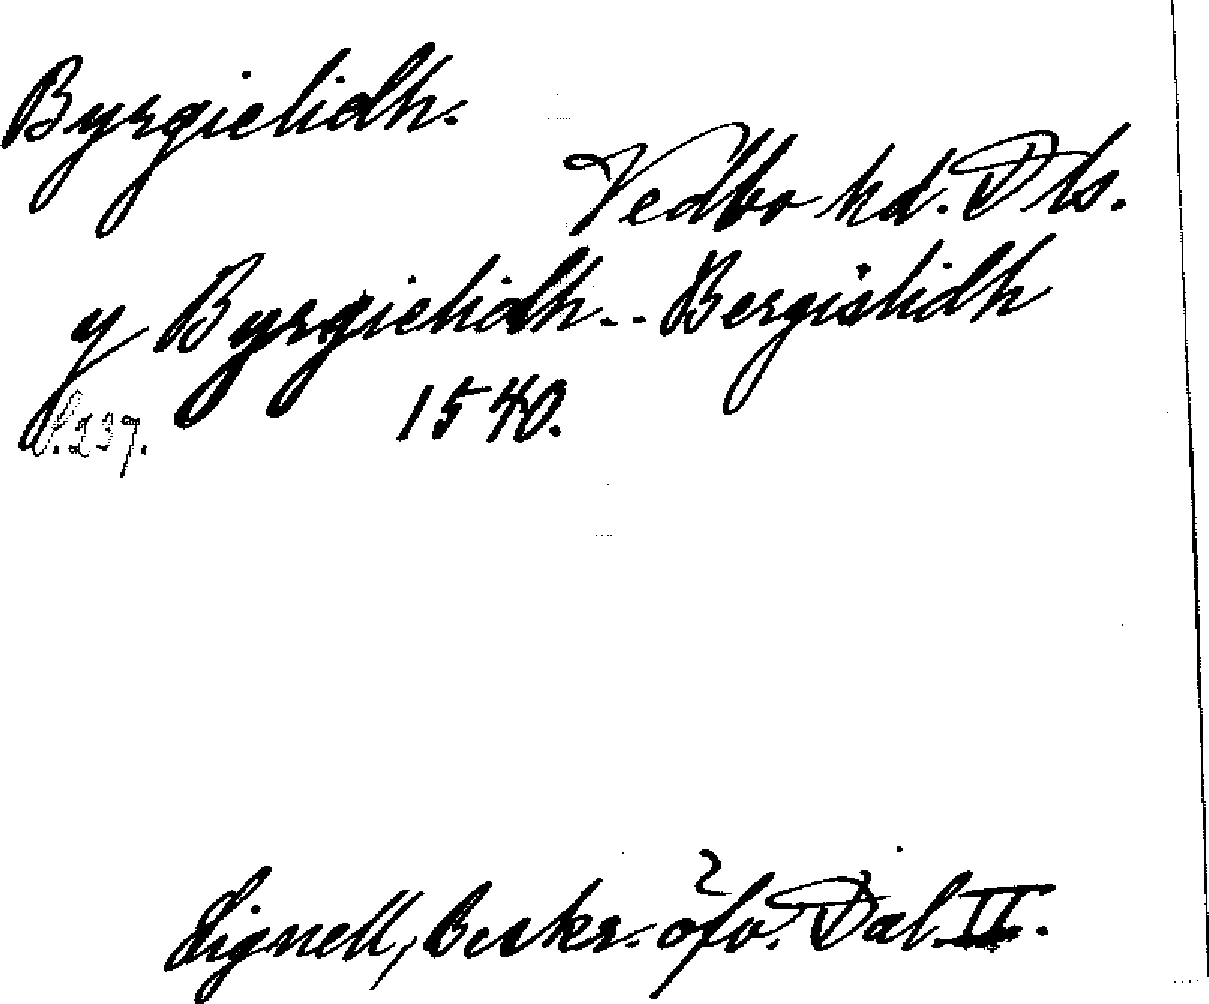 Byrgielidh.
Vedbo hd. Dls.
y Byrgielidh.. Bergislidh
1540.
s. 237.
Lignell, Beskr. öfv. Dal. II.